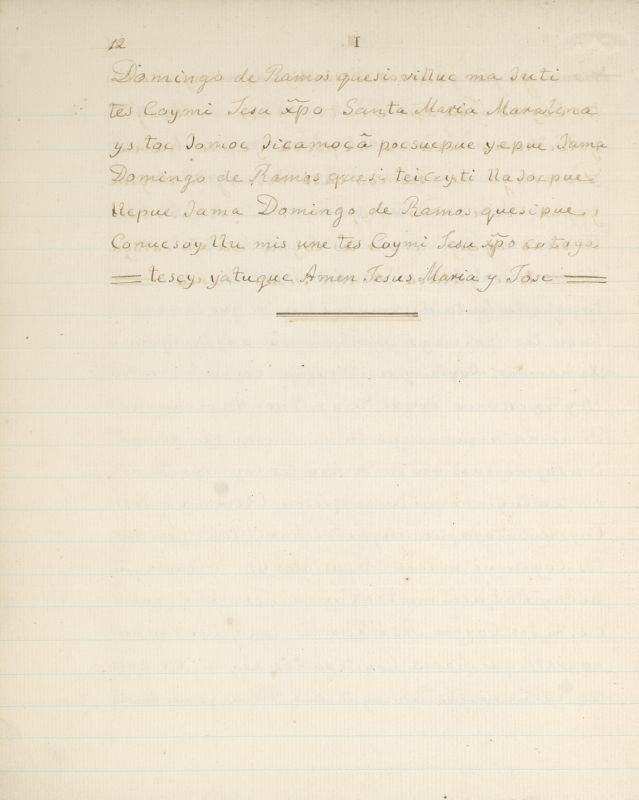 12 I
Domingo de Ramos quesi villuc ma Juti
tes Coymi Jesu xp̃o Santa Maria Maralena
ys toc Jomoc Jicamocã pocsuepue yepue Jama
Domingo de Ramos quesi teiceyti Nadocpue
Nepue Jama Domingo de Ramos quesipue,
Conucsoy Nu mis une tes Coymi Jesu xp̃o
tesey, yatuque Amen Jesus Maria y Jose